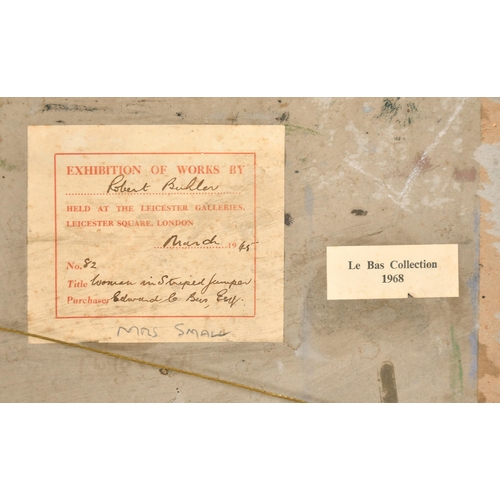 EXHIBITION OF WORKS BY
Robert Buhler
HELD AT THE LEICESTER GALLERIES,
LEICESTER SQUARE, LONDON
March 1945
No. 82
Title Woman in Striped Jumper
Purchaser Edward le Bas, Esq.
MRS SMALL
Le Bas Collection
1968